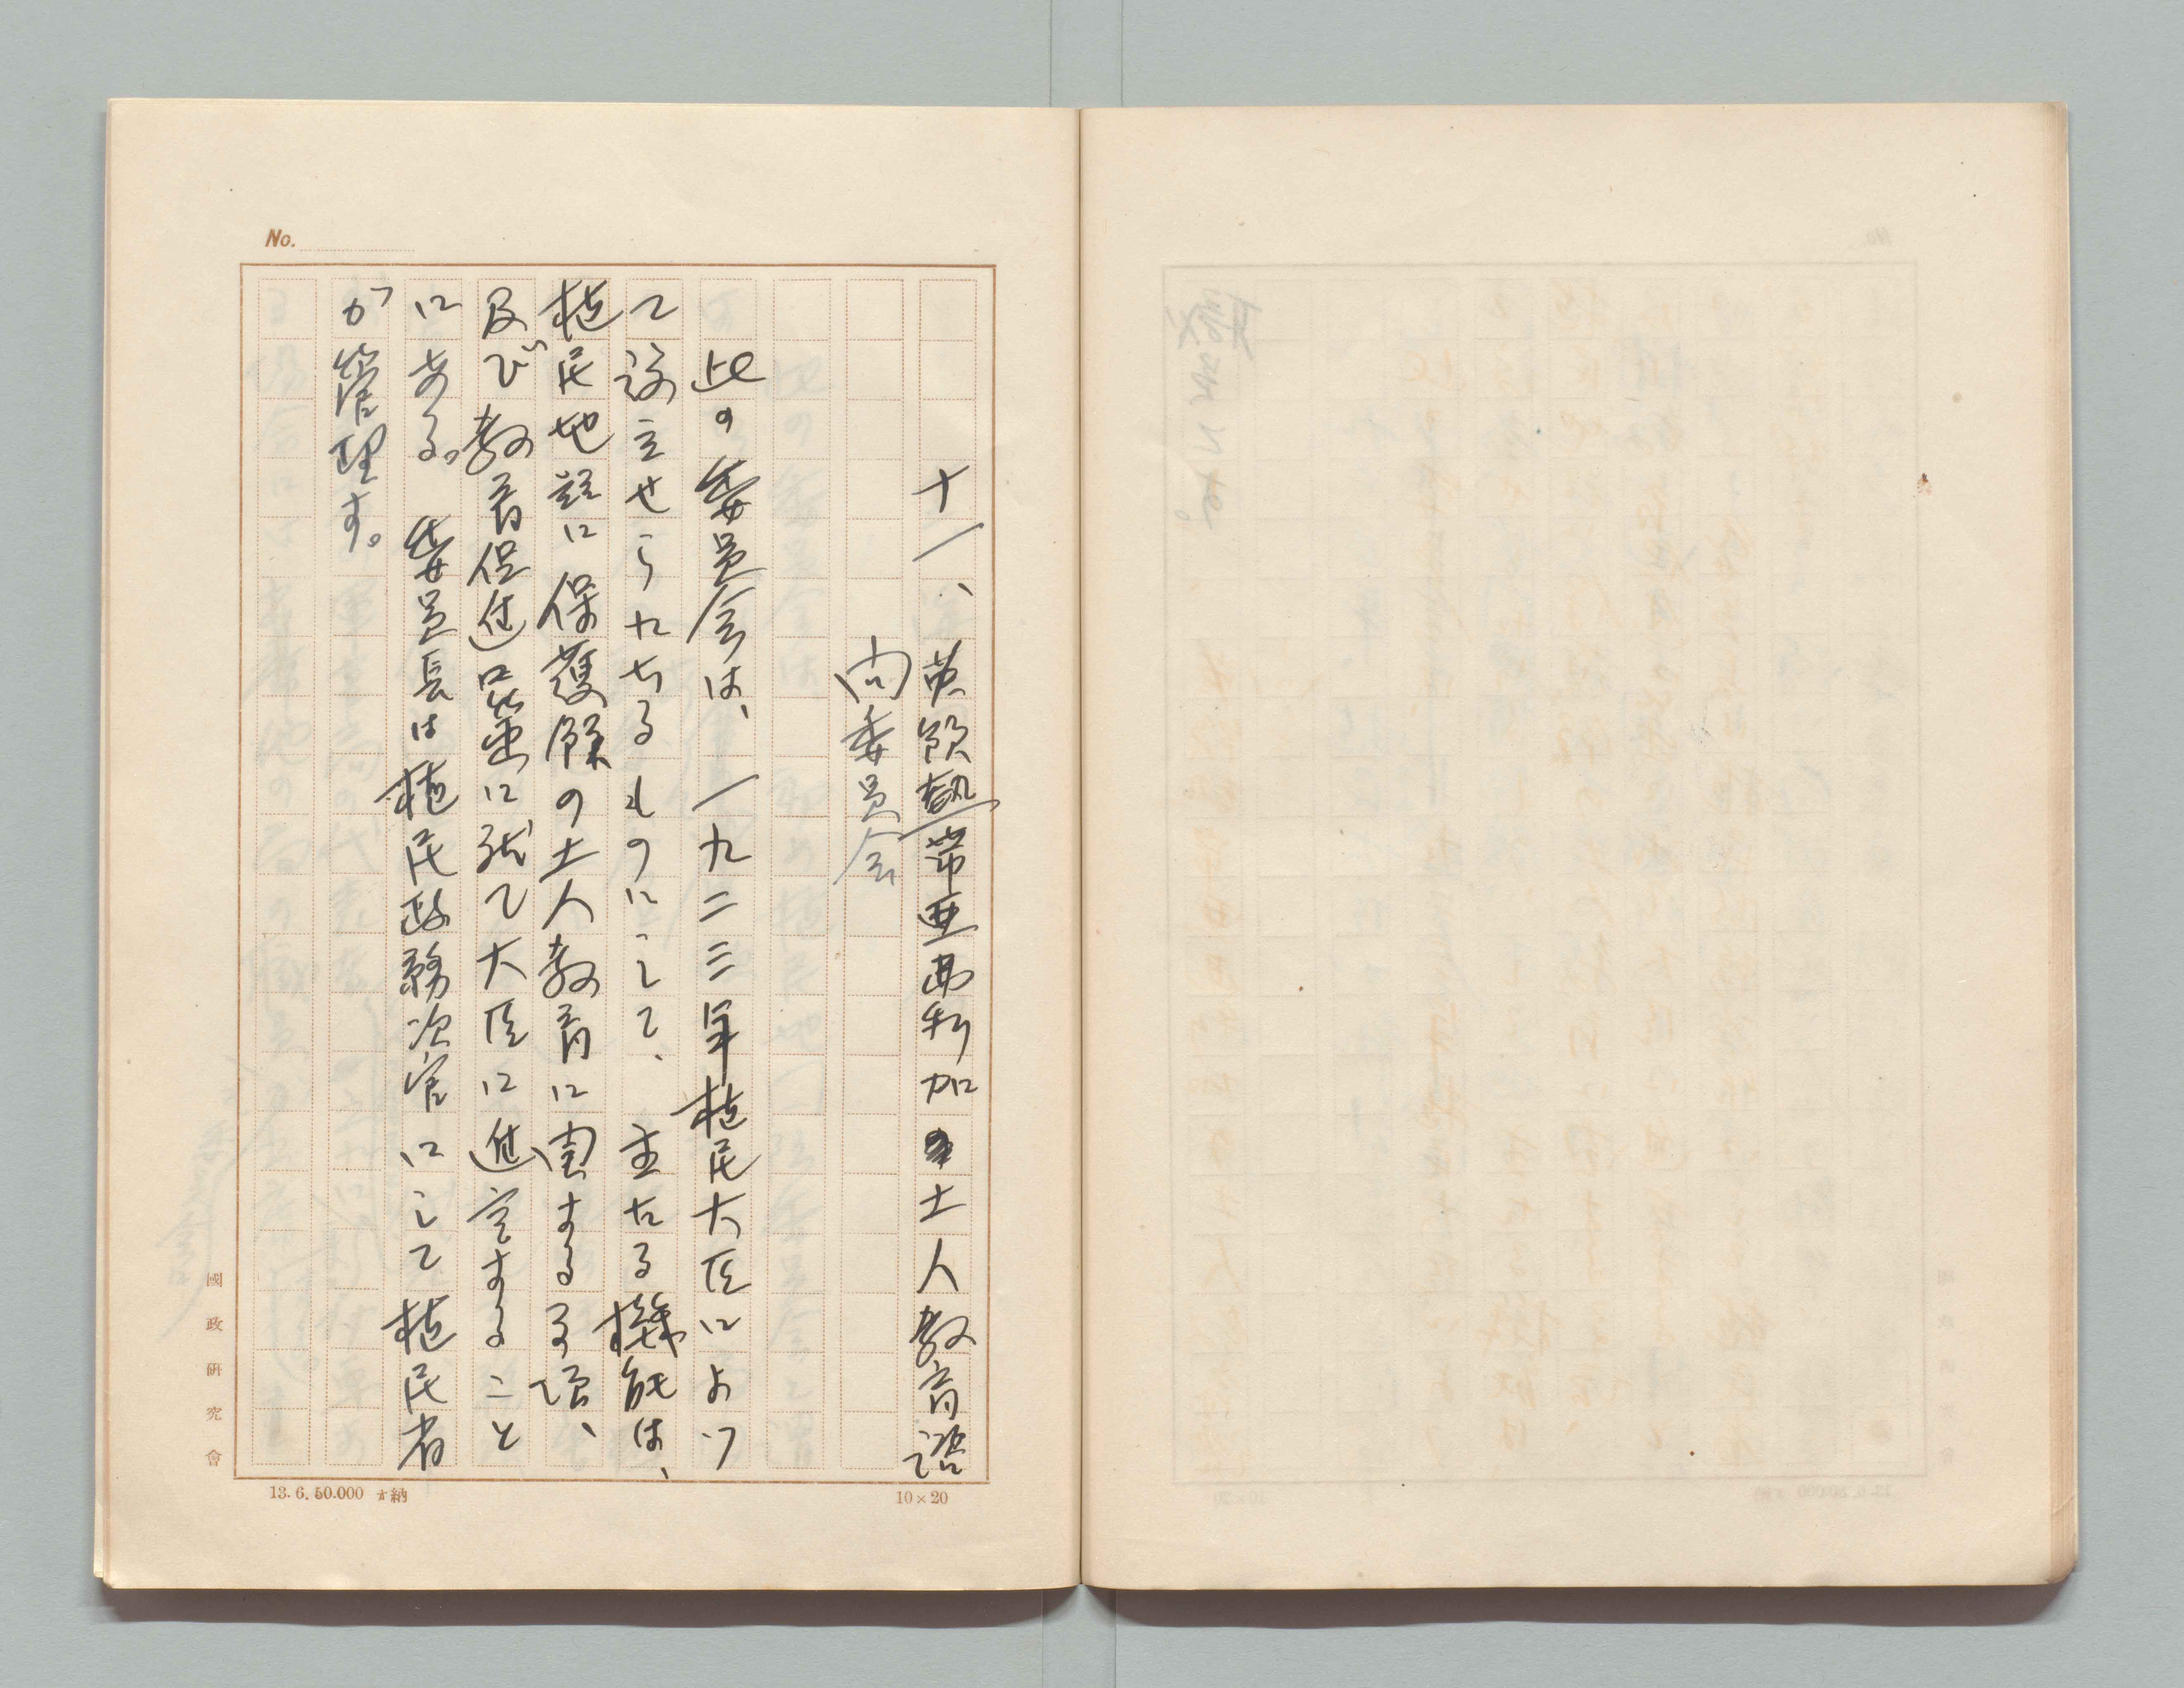 No.
十一、英領熱帯亜弗利加土人教育諮
問委員会
此の委員会は、一九二三年植民大臣によつ
て設立せられたるものにして、主たる機能は、
植民地並に保護領の土人教育に関する事項、
及び教育促進に就て大臣に進言すること
にある。委員長は植民政務次官にして植民省
が管理す。
國政研究會
13.6.50.000 納
10×20